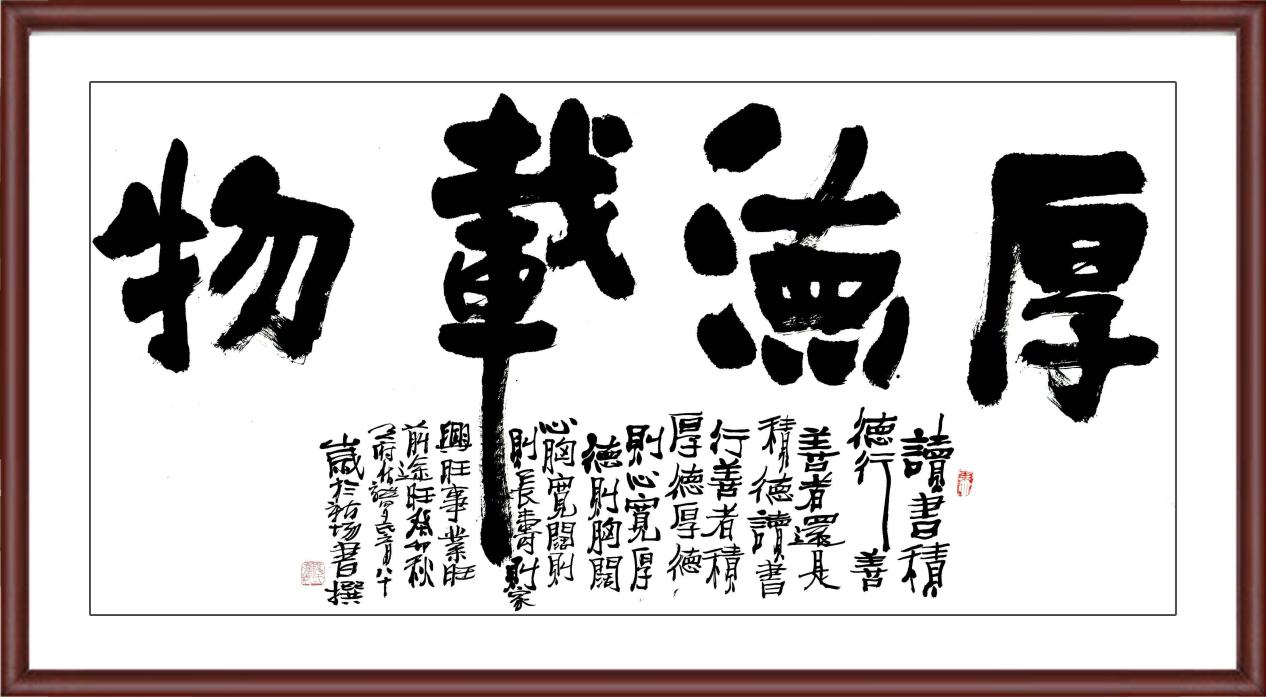 厚德載物
讀書積
德行善
善者還是
積德讀書
行善者積
厚德厚德
則心寬厚
德則胸闊
心胸寬闊則
則長壽則家
興旺事業旺
前途旺癸卯秋
八十
歲於
書撰